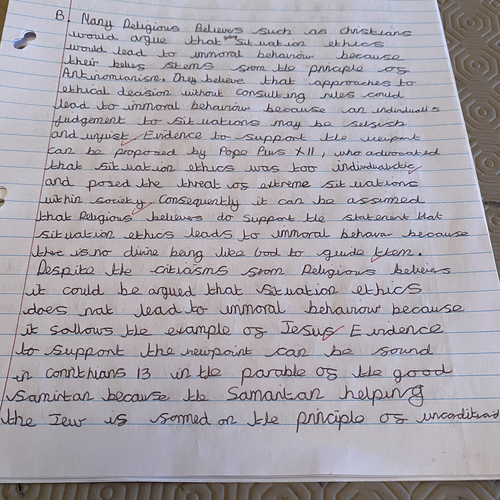 B. Many Religious Believers such as christians
would argue that situation ethics
would lead to immoral behaviour because
their belies stems from the principle of
Antinomianism. They believe that approaches to
ethical decision without consulting rules could
lead to immoral behaviour because an individual's
judgement to situations may be selfish
and unjust. Evidence to support the viewpoint
can be proposed by Pope Pius XII, who advocated
that situation ethics was too individualistic
and posed the threat of extreme situations
within society. Consequently it can be assumed
that Religious believers do support the statement that
situation ethics leads to immoral behaviour because
there is no divine being like God to guide them.
Despite the citicisms from Religious believers
it could be argued that situation ethics
does not lead to immoral behaviour because
it follows the example of Jesus. Evidence
to support the viewpoint can be found
in corinthians 13 in the parable of the good
samiritan because the Samaritan helping
the Jew is formed on the principle of